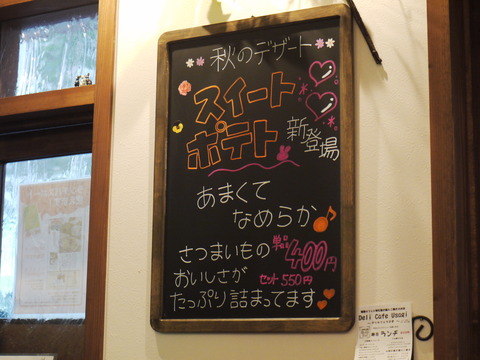 秋のデザート
スイート
ポテト
新登場
あまくて
なめらか
さつまいもの
おいしさが
たっぷり詰まってます
単品400円
セット550円
Deli Cafe Usagi
ランチ